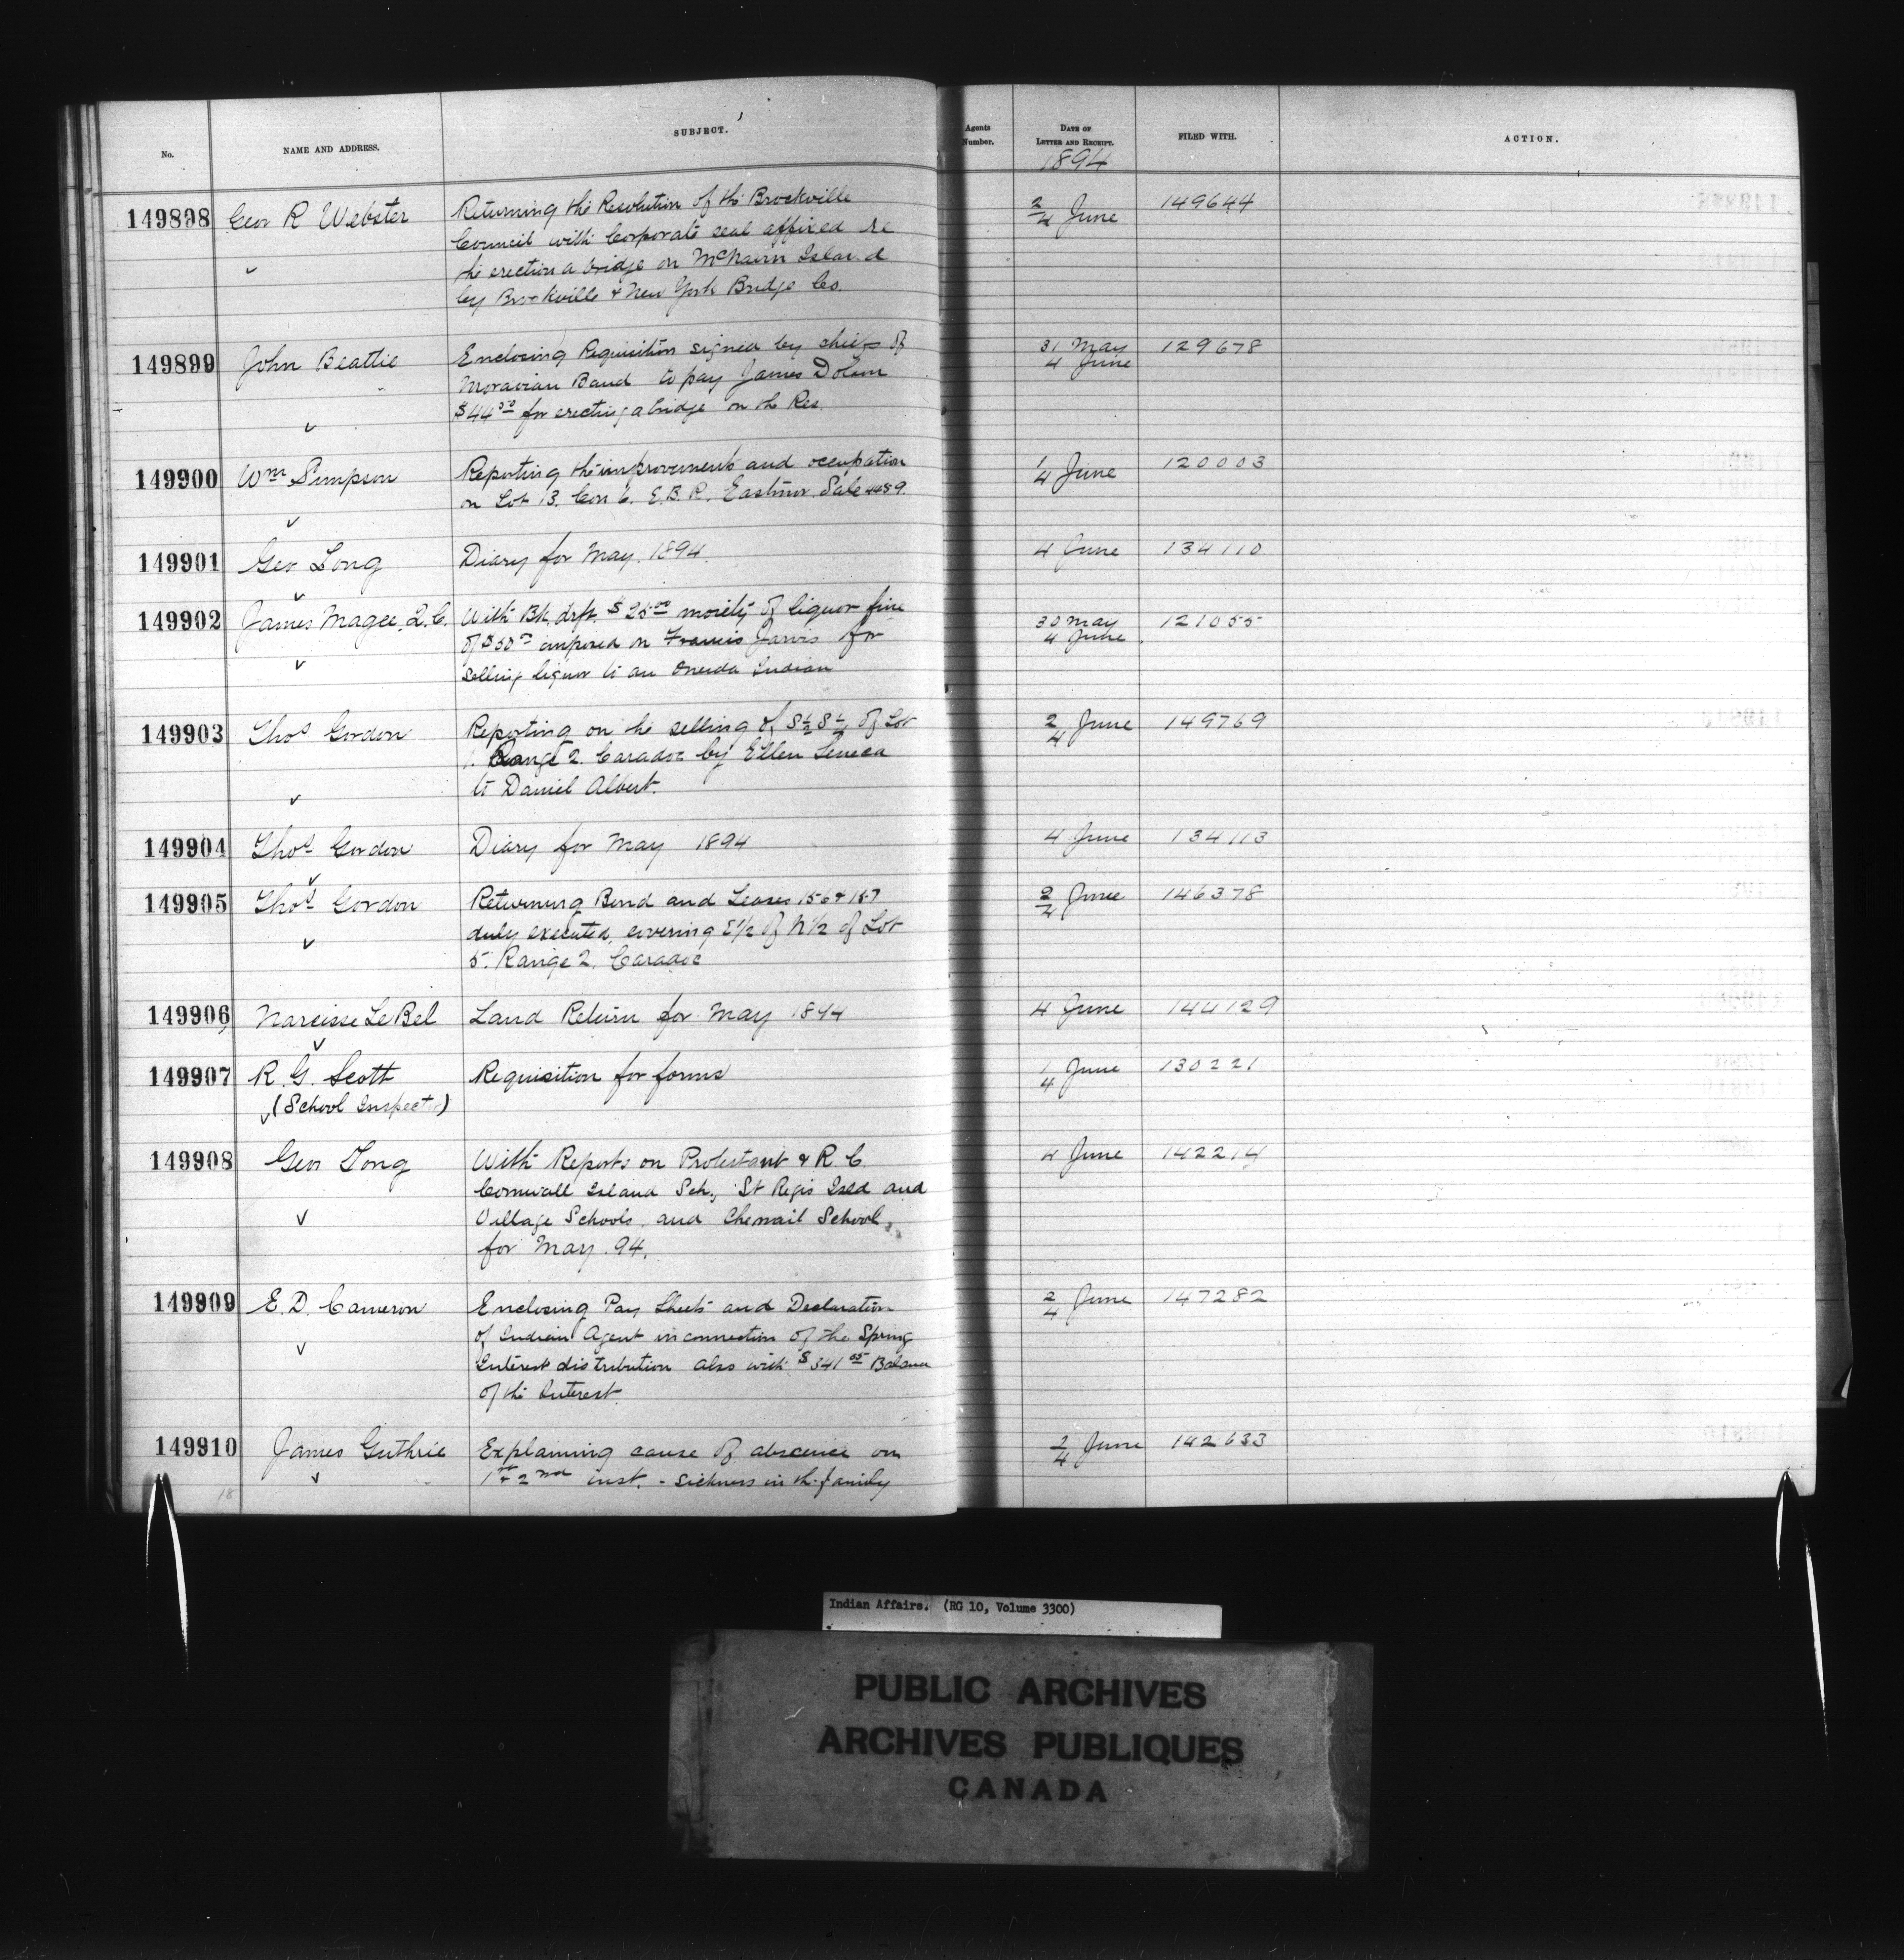 No.
NAME AND ADDRESS.
SUBJECT.
Agents Number.
DATE OF LETTER AND RECEIPT.
FILED WITH.
ACTION.
1894
149898 Geor R Webster
Returning the Resolution of the Brockville
Council with Corporate seal affixed re
the erection a bridge on McNairn Island
by Brockville & New York Bridge Co.
2/4 June 149644
149899 John Beattie
Enclosing Requisition signed by chiefs of
Moravian Band to pay James Dolson
$44 50 for erecting a bridge on the Res.
31 May
4 June 129678
149900 Wm Simpson
Reporting the improvements and occupation
on Lot 13. Con 6. E.B.R. Eastnor. Sale 4489.
1/4 June 120003
149901 Geo Long
Diary for May. 1894.
4 June 134110
149902 James Magee, Q.C.
With Bk. drft. $25 00 moiety of liquor fine
of $50 00 imposed on Francis Jarvis for
selling liquor to an Oneida Indian
30 May
4 June. 121055
149903 Thos Gordon
Reporting on the selling of S½ S½ of Lot
1. Range 2. Caradoc by Ellen Seneca
to Daniel Albert.
2/4 June 149769
149904 Thos Gordon
Diary for May 1894
4 June 134113
149905 Thos Gordon
Returning Bond and Leases 156 & 157
duly executed, covering E½ of N½ of Lot
5. Range 2. Caradoc
2/4 June 146378
149906 Narcisse LeBel
Land Return for May 1894
4 June 144129
149907 R. G. Scott
(School Inspector)
Requisition for forms
1/4 June 130221
149908 Geo Long
With Reports on Protestant & R. C.
Cornwall Island Sch., St Regis Isld and
Village Schools, and Chenail School,
for May. 94.
4 June 142214
149909 E. D. Cameron
Enclosing Pay Sheets and Declaration
of Indian Agent in connection of the Spring
Interest distribution also with $341 05 Balance
of the Interest.
2/4 June 147282
149910 James Guthrie
Explaining cause of absence on
1st & 2nd inst. - sickness in the family
2/4 June 142633
18
Indian Affairs. (RG 10, Volume 3300)
PUBLIC ARCHIVES
ARCHIVES PUBLIQUES
CANADA